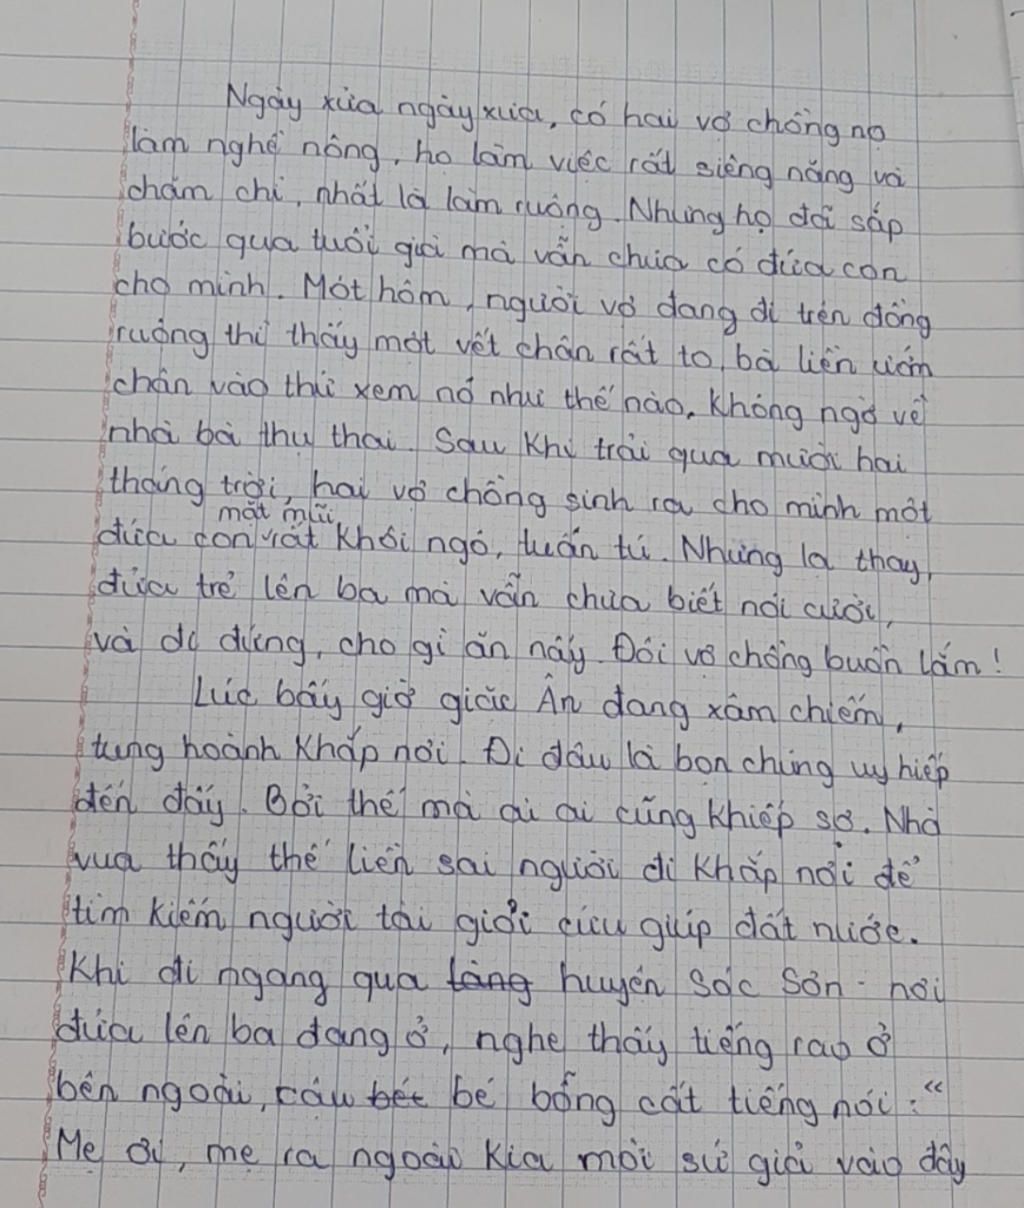 Ngày xửa ngày xưa, có hai vợ chồng nọ
làm nghề nông, họ làm việc rất siêng năng và
chăm chỉ, nhất là làm ruộng. Nhưng họ đã sắp
bước qua tuổi già mà vẫn chưa có đứa con
cho mình. Một hôm, người vợ đang đi trên đồng
ruộng thì thấy một vết chân rất to, bà liền ướm
chân vào thử xem nó như thế nào. Không ngờ về
nhà bà thụ thai. Sau khi trải qua mười hai
tháng trời, hai vợ chồng sinh ra cho mình một
mặt mũi
đứa con rất khôi ngô, tuấn tú. Nhưng lạ thay,
đứa trẻ lên ba mà vẫn chưa biết nói cười,
và đi đứng, cho gì ăn nấy. Đôi vợ chồng buồn lắm!
Lúc bấy giờ giặc Ân đang xâm chiếm,
tung hoành khắp nơi. Đi đâu là bọn chúng uy hiếp
đến đấy. Bởi thế mà ai ai cũng khiếp sợ. Nhà
vua thấy thế liền sai người đi khắp nơi để
tìm kiếm người tài giỏi cứu giúp đất nước.
Khi đi ngang qua làng huyện Sóc Sơn - nơi
đứa lên ba đang ở, nghe thấy tiếng rao ở
bên ngoài, cậu bét bé bỗng cất tiếng nói: "
Mẹ ơi, mẹ ra ngoài kia mời sứ giả vào đây